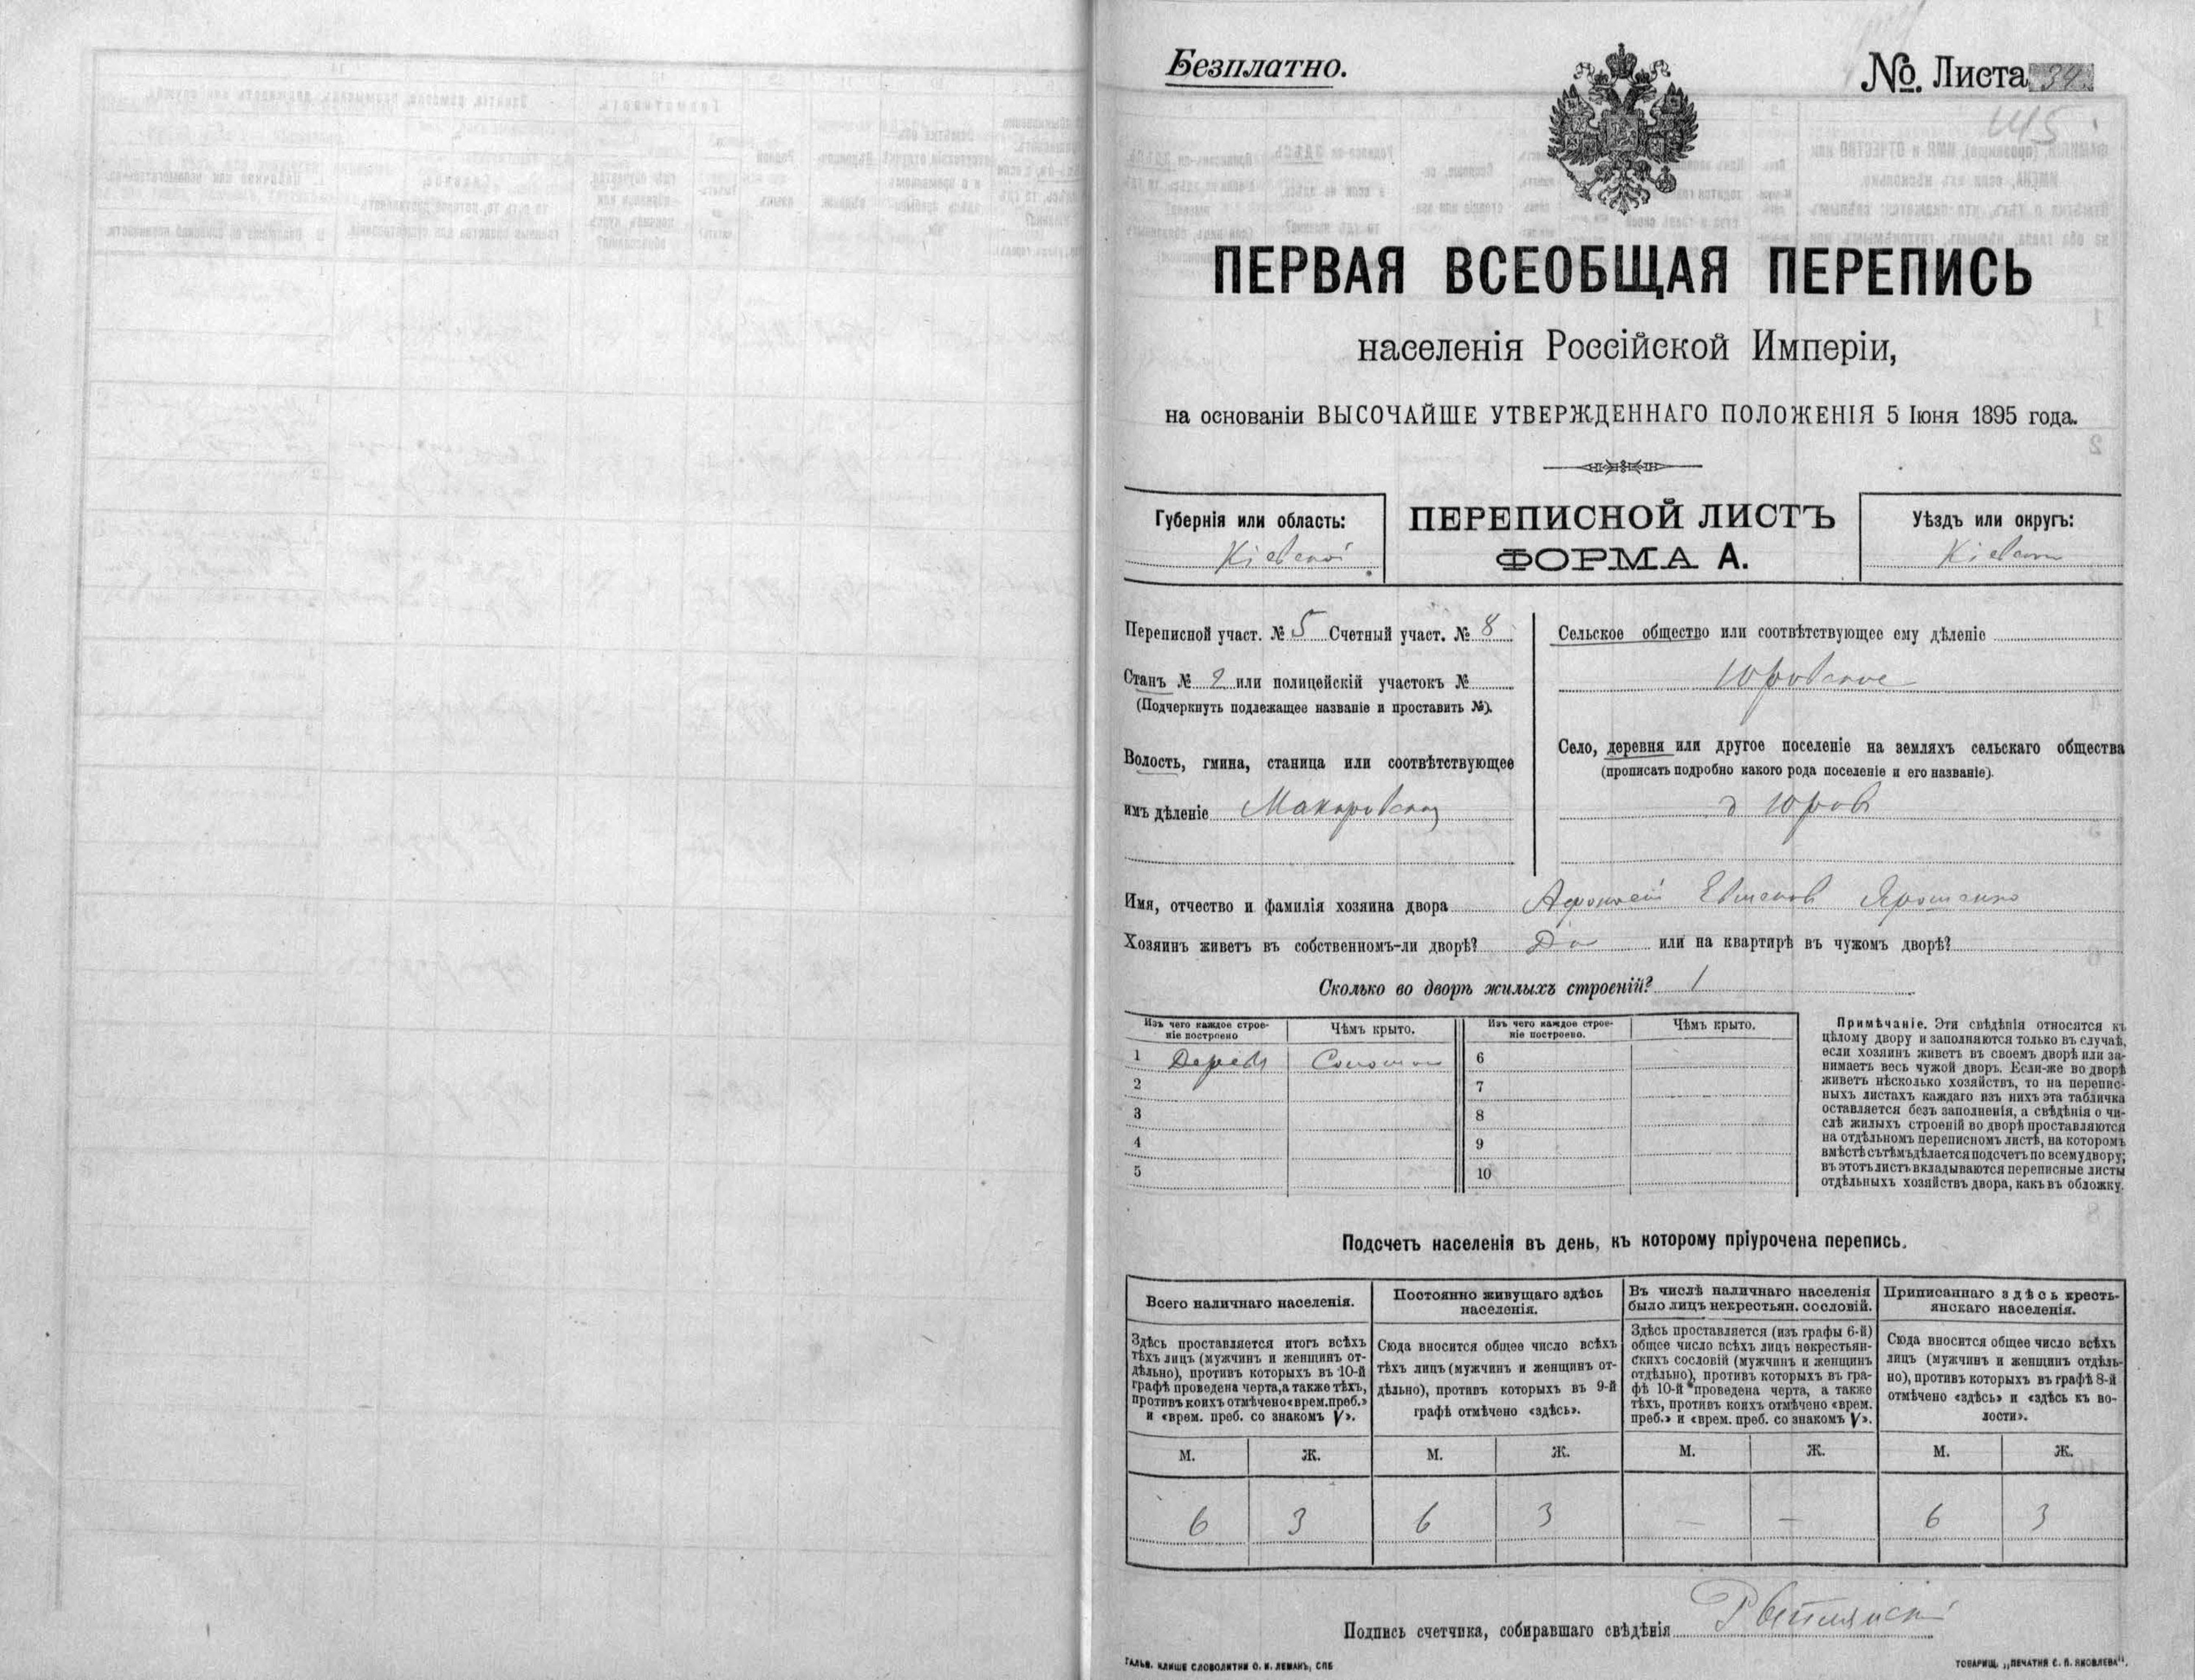 Безплатно.
№ Листа 34.
ПЕРВАЯ ВСЕОБЩАЯ ПЕРЕПИСЬ
населенія Россійской Имперіи,
на основаніи ВЫСОЧАЙШЕ УТВЕРЖДЕННАГО ПОЛОЖЕНІЯ 5 Іюня 1895 года.
Губернія или область:
Кіевской
ПЕРЕПИСНОЙ ЛИСТЪ
ФОРМА А.
Уѣздъ или округъ:
Кіевскій
Переписной участ. № 5 Счетный участ. № 8
Станъ № 2 или полицейскій участокъ №
(Подчеркнуть подлежащее названіе и проставить №).
Волость, гмина, станица или соотвѣтствующее
имъ дѣленіе Макаровская
Сельское общество или соотвѣтствующее ему дѣленіе
Юровское
Село, деревня или другое поселеніе на земляхъ сельскаго общества
(прописать подробно какого рода поселеніе и его названіе).
д Юровъ
Имя, отчество и фамилія хозяина двора Афонасій Евменовъ Ярошенко
Хозяинъ живетъ въ собственномъ-ли дворѣ? Да или на квартирѣ въ чужомъ дворѣ?
Сколько во дворѣ жилыхъ строеній? 1
Изъ чего каждое строе-
ніе построено
Чѣмъ крыто.
Изъ чего каждое строе-
ніе построено.
Чѣмъ крыто.
1 Дерева Соломой
2
3
4
5
6
7
8
9
10
Примѣчаніе. Эти свѣдѣнія относятся къ
цѣлому двору и заполняются только въ случаѣ,
если хозяинъ живетъ въ своемъ дворѣ или за-
нимаетъ весь чужой дворъ. Если-же во дворѣ
живетъ нѣсколько хозяйствъ, то на перепис-
ныхъ листахъ каждаго изъ нихъ эта табличка
оставляется безъ заполненія, а свѣдѣнія о чи-
слѣ жилыхъ строеній во дворѣ проставляются
на отдѣльномъ переписномъ листѣ, на которомъ
вмѣстѣ съ тѣмъ дѣлается подсчетъ по всему двору;
въ этотъ листъ вкладываются переписные листы
отдѣльныхъ хозяйствъ двора, какъ въ обложку.
Подсчетъ населенія въ день, къ которому пріурочена перепись.
Всего наличнаго населенія.
Здѣсь проставляется итогъ всѣхъ
тѣхъ лицъ (мужчинъ и женщинъ от-
дѣльно), противъ которыхъ въ 10-й
графѣ проведена черта, а также тѣхъ,
противъ коихъ отмѣчено «врем. преб.»
и «врем. преб. со знакомъ V».
Постоянно живущаго здѣсь
населенія.
Сюда вносится общее число всѣхъ
тѣхъ лицъ (мужчинъ и женщинъ от-
дѣльно), противъ которыхъ въ 9-й
графѣ отмѣчено «здѣсь».
Въ числѣ наличнаго населенія
было лицъ некрестьян. сословій.
Здѣсь проставляется (изъ графы 6-й)
общее число всѣхъ лицъ некрестьян-
скихъ сословій (мужчинъ и женщинъ
отдѣльно), противъ которыхъ въ гра-
фѣ 10-й проведена черта, а также
тѣхъ, противъ коихъ отмѣчено «врем.
преб.» и «врем. преб. со знакомъ V».
Приписаннаго здѣсь кресть-
янскаго населенія.
Сюда вносится общее число всѣхъ
лицъ (мужчинъ и женщинъ отдѣль-
но), противъ которыхъ въ графѣ 8-й
отмѣчено «здѣсь» и «здѣсь къ во-
лости».
М. Ж. М. Ж. М. Ж. М. Ж.
6 3 6 3 — — 6 3
Подпись счетчика, собиравшаго свѣдѣнія
ГАЛЬВ. КЛИШЕ СЛОВОЛИТНИ О. И. ЛЕМАНЪ, СПБ
ТОВАРИЩ. „ПЕЧАТНЯ С. П. ЯКОВЛЕВА“.